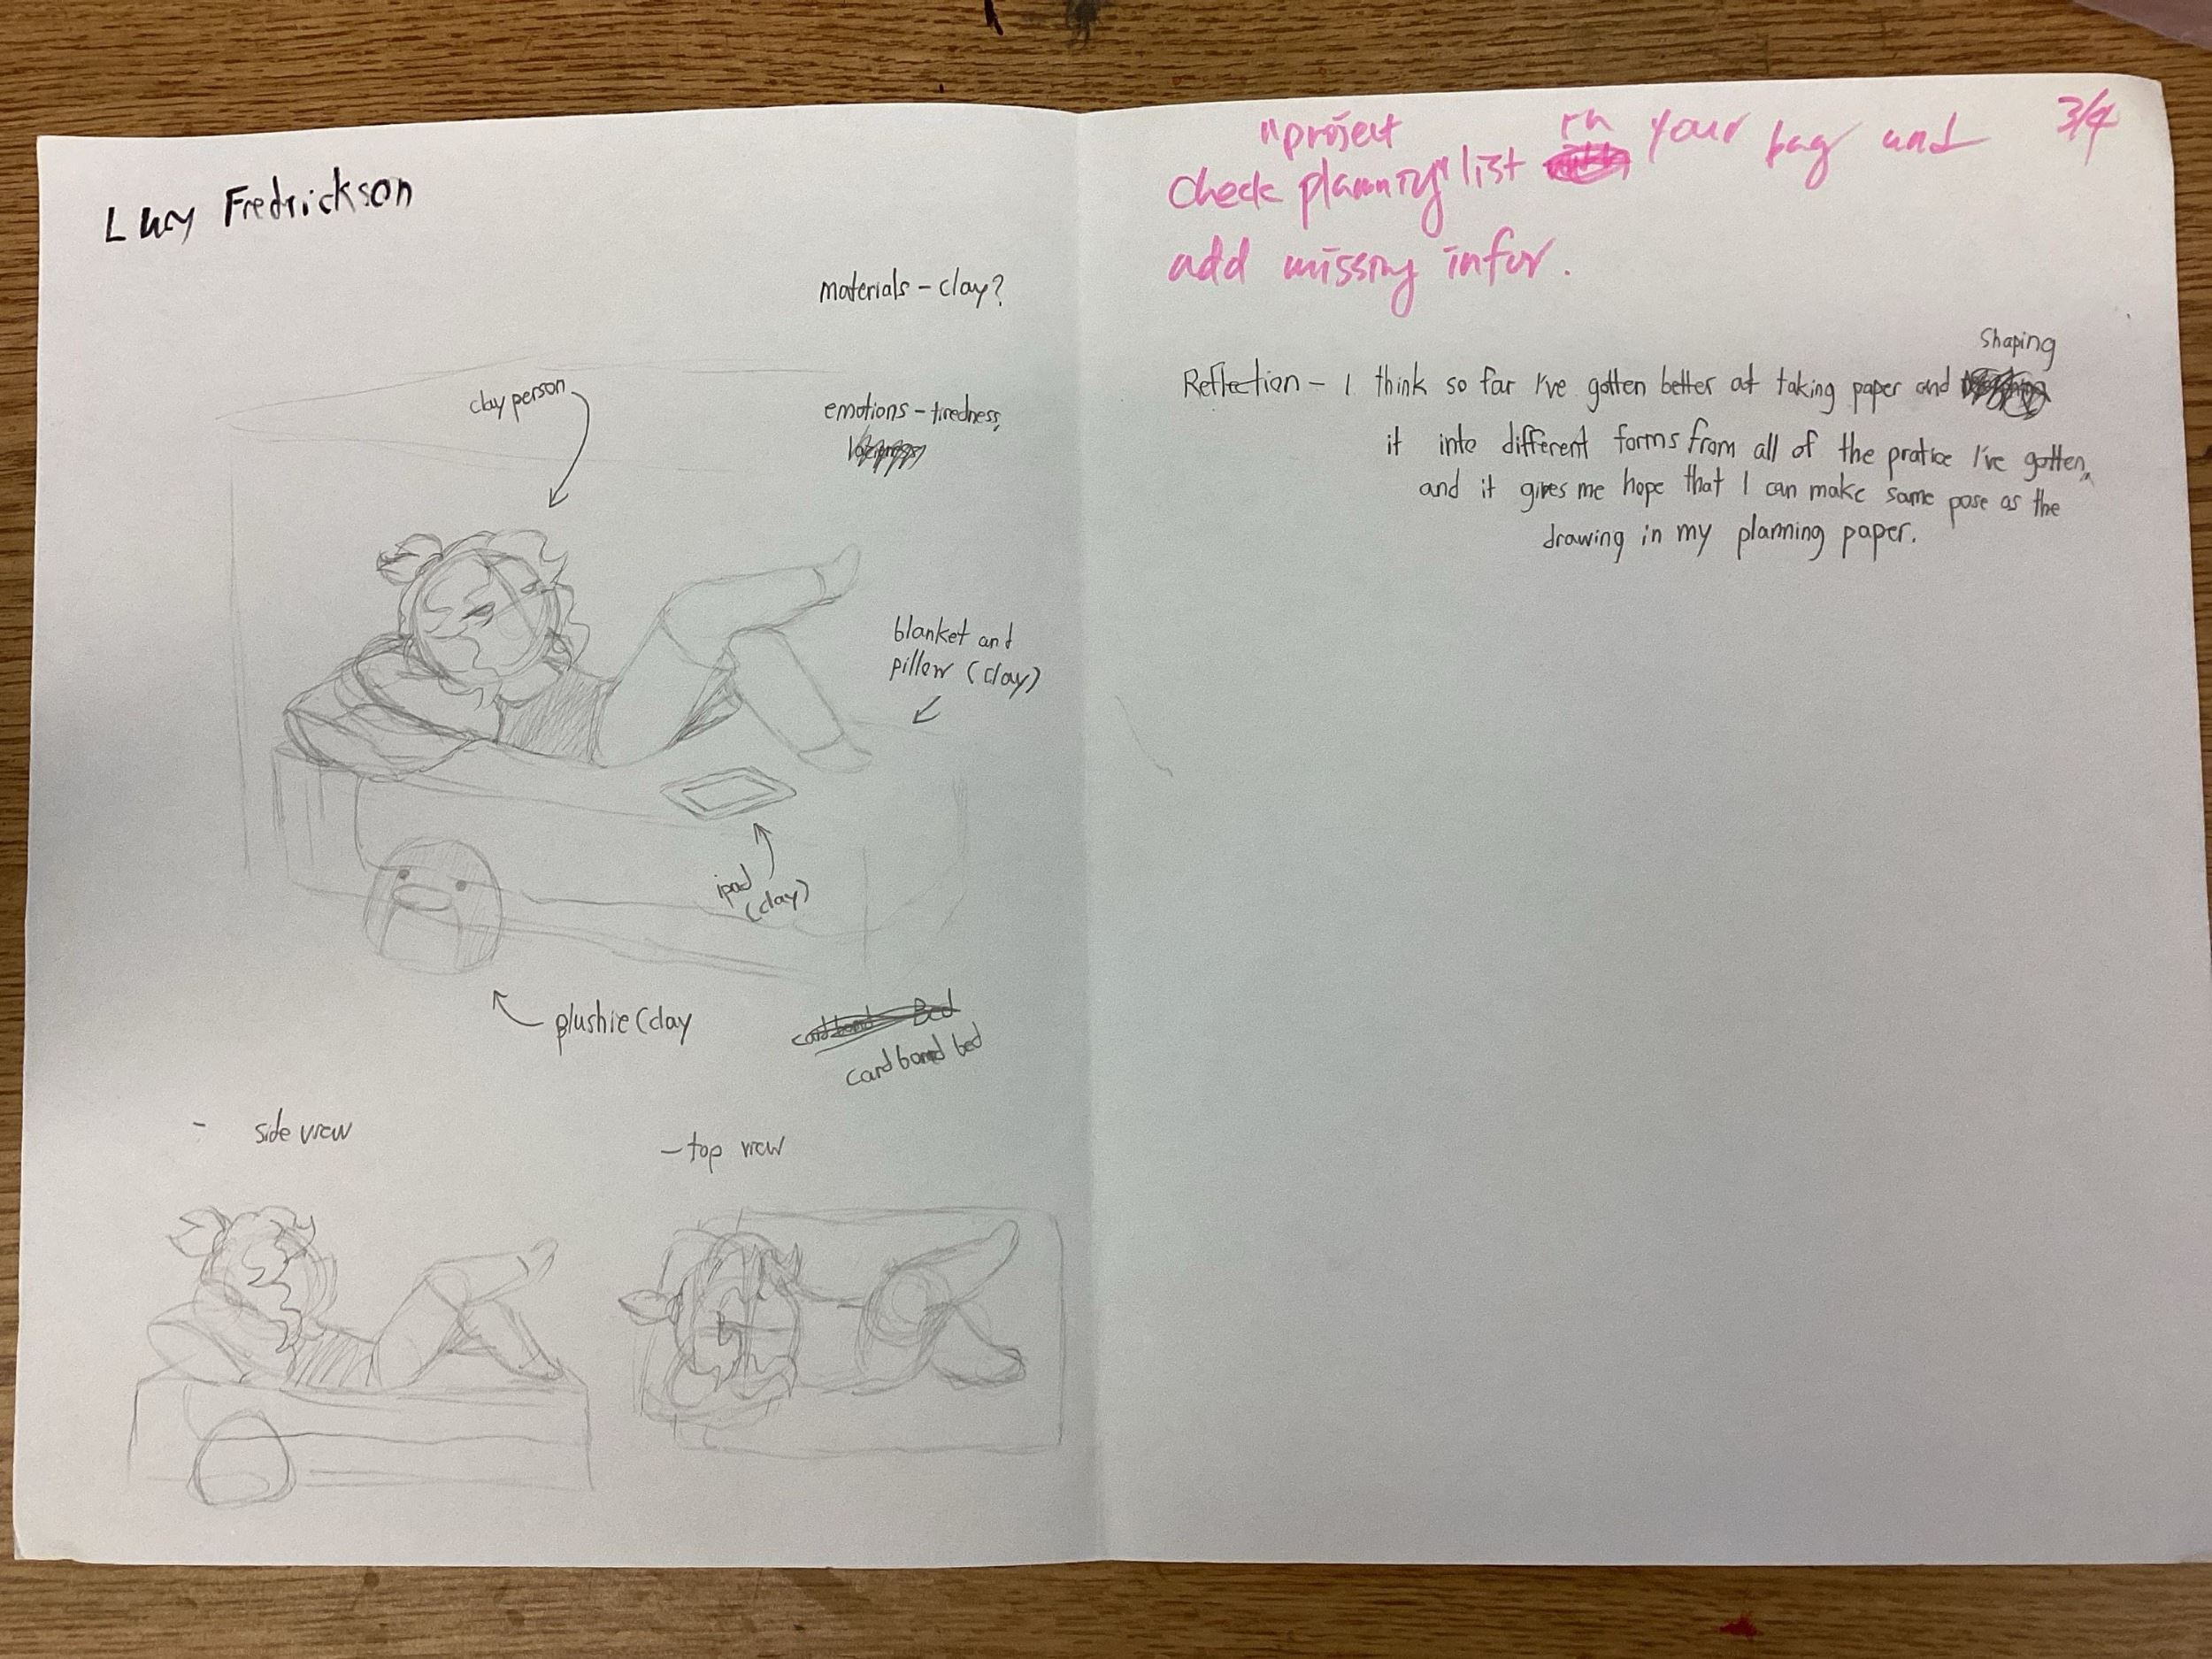 Lucy Fredrickson
materials - clay?
clay person
emotions - tiredness,
blanket and
pillow (clay)
ipad
(clay)
plushie (clay
cardboard Bed
cardboard bed
- side view
- top view
"project rn your bag and 3/4
check planning" list
add missing infor.
Shaping
Reflection - I think so far I've gotten better at taking paper and
it into different forms from all of the pratice I've gotten,
and it gives me hope that I can make same pose as the
drawing in my planning paper.